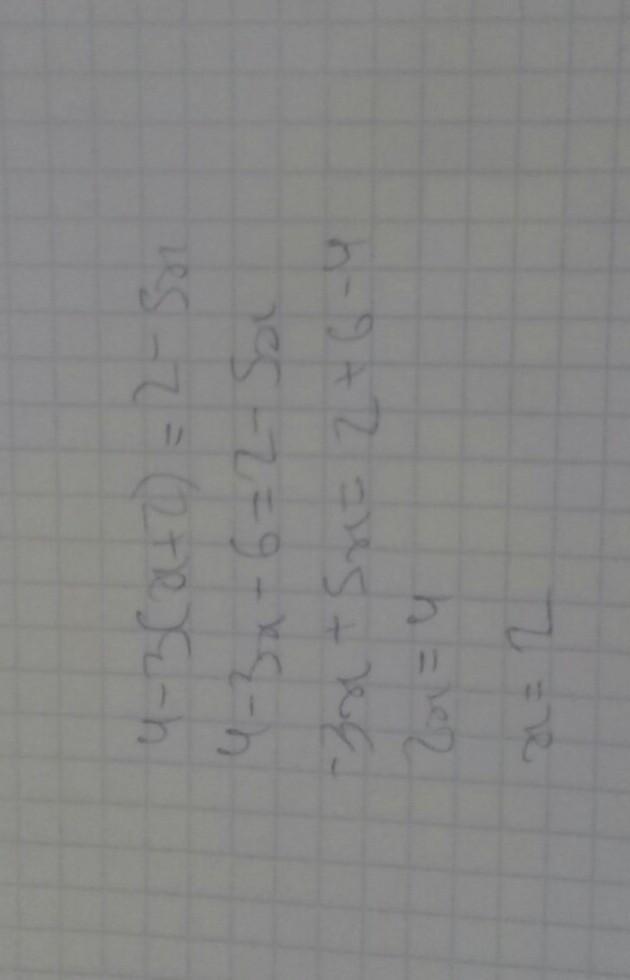 4-3(x+2)=2-5x
4-3x-6=2-5x
-3x+5x=2+6-4
2x=4
x=2